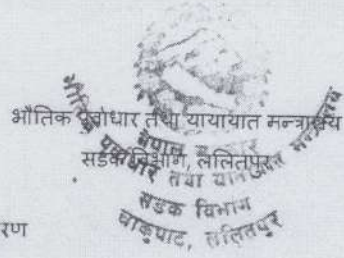 भौतिक पूर्वाधार तथा यायायात मन्त्रालय
सडक विभाग, ललितपुर
नेपाल सरकार
भौतिक पूर्वाधार तथा यातायात मन्त्रालय
सडक विभाग
चाकुपाट, ललितपुर
रण